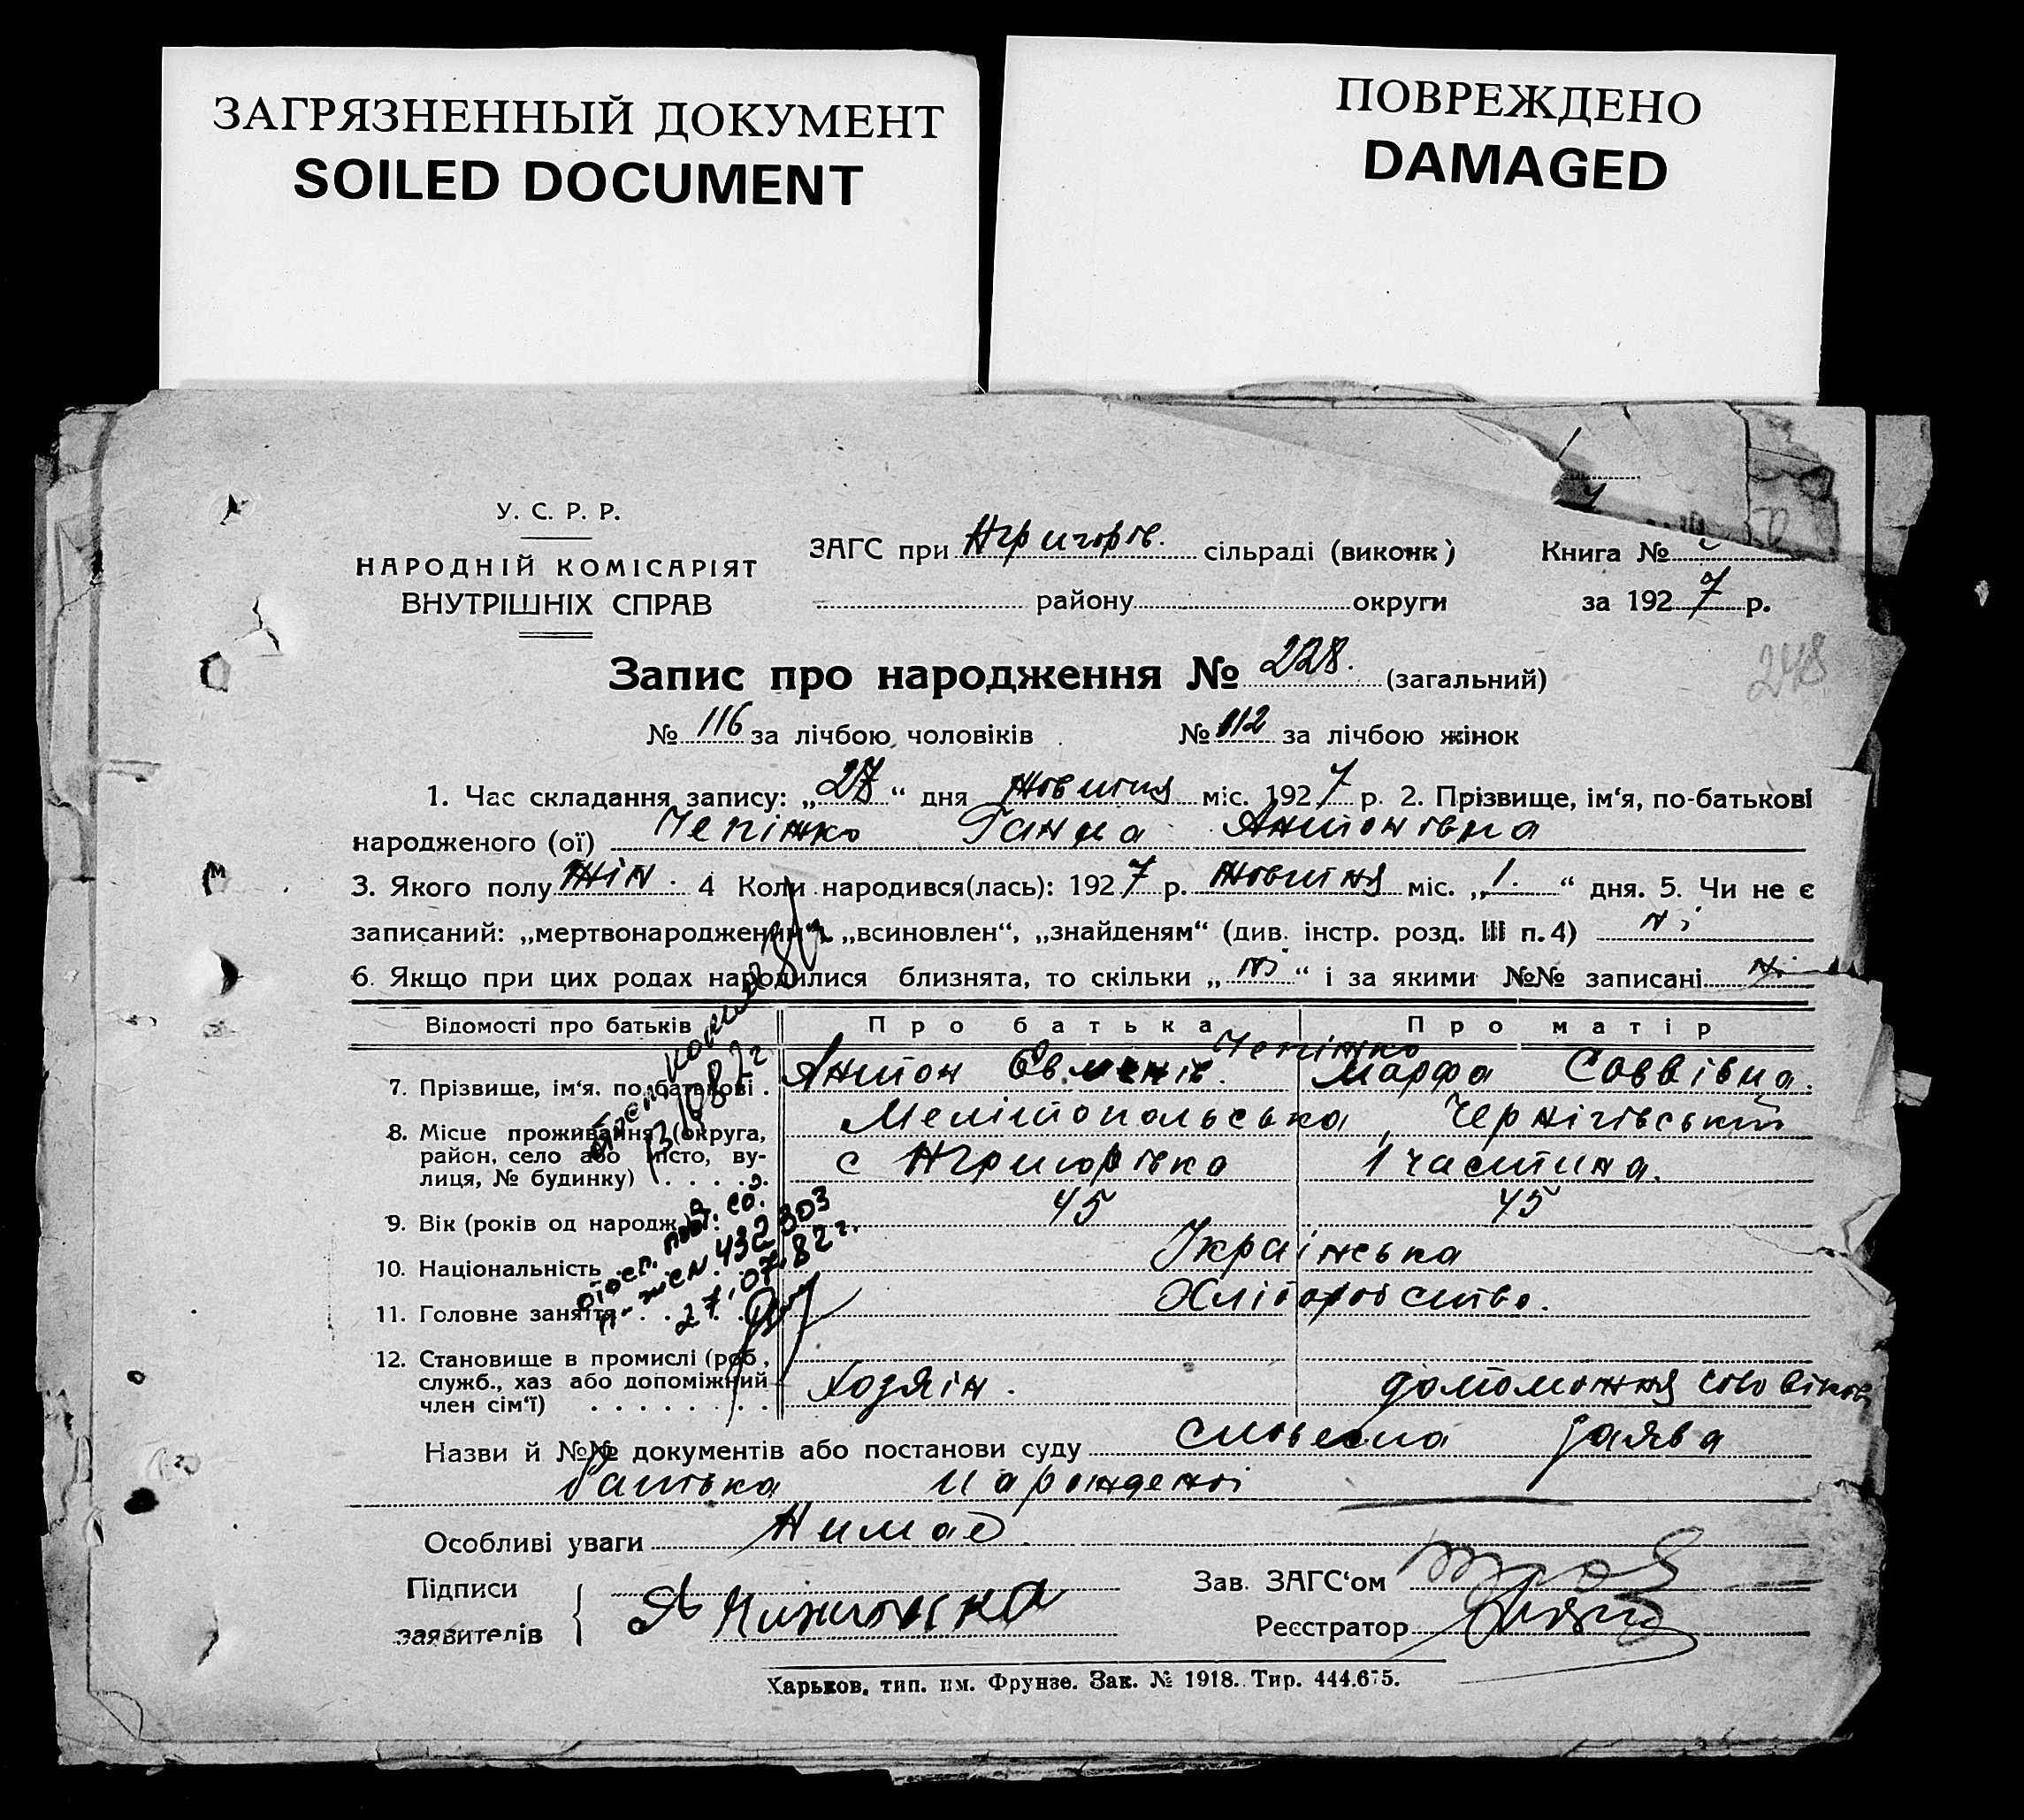 ЗАГРЯЗНЕННЫЙ ДОКУМЕНТ
SOILED DOCUMENT
ПОВРЕЖДЕНО
DAMAGED
У. С. Р. Р.
НАРОДНІЙ КОМІСАРІЯТ
ВНУТРІШНІХ СПРАВ
ЗАГС при Нгригорів. сільраді (виконк) Книга №
району округи за 1927 р.
Запис про народження № 228. (загальний)
248
№ 116 за лічбою чоловіків № 112 за лічбою жінок
1. Час складання запису: „27“ дня жовтня міс. 1927 р. 2. Прізвище, ім‘я, по-батькові
народженого (ої) Чепіжко Ганна Антонівна
3. Якого полу жін. 4 Коли народився(лась): 1927 р. жовтня міс. „1.“ дня. 5. Чи не є
записаний: „мертвонароджений“, „всиновлен“, „знайденям“ (див. інстр. розд. III п. 4) ні
6. Якщо при цих родах народилися близнята, то скільки „ні“ і за якими №№ записані ні
Відомості про батьків Про батька Про матір
Чепіжко
7. Прізвище, ім‘я. по-батькові . Антон Євменів. Марфа Саввівна.
8. Місце проживання (округа, Мелітопольська, Чернігівський
район, село або місто, ву- с Нгригорівка 1 частина.
лиця, № будинку) . . . . .
9. Вік (років од народж.) 45 45
10. Національність Українська
11. Головне заняття Хліборобство.
12. Становище в промислі (роб.,
служб., хаз або допоміжний Хозяін. допоможня чоловікові
член сім‘ї) . . . . . . . .
27.07.82 г.
Назви й №№ документів або постанови суду словесна заява
батька
Особливі уваги Нимає
Підписи
заявителів
Зав. ЗАГС‘ом
Реєстратор
Харьков, тип. им. Фрунзе. Зак. № 1918. Тир. 444.675.